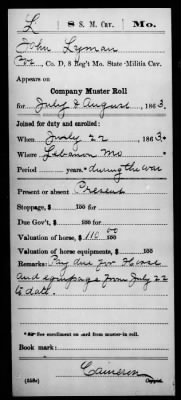 L | 8 S. M. Cav. | Mo.
John Lyman
Pvt, Co. D, 8 Reg't Mo. State Militia Cav.
Appears on
Company Muster Roll
for July & August, 1863.
Joined for duty and enrolled:
When July 22, 1863.*
Where Lebanon Mo
Period years.* during the war
Present or absent Present
Stoppage, $ 100 for
Due Gov't, $ 100 for
Valuation of horse, $ 110 00/100
Valuation of horse equipments, $ 100
Remarks: Pay due for Horse
and equipage from July 22
to date.
*See enrollment on card from muster-in roll.
Book mark:
Cameron
(858c) Copyist.